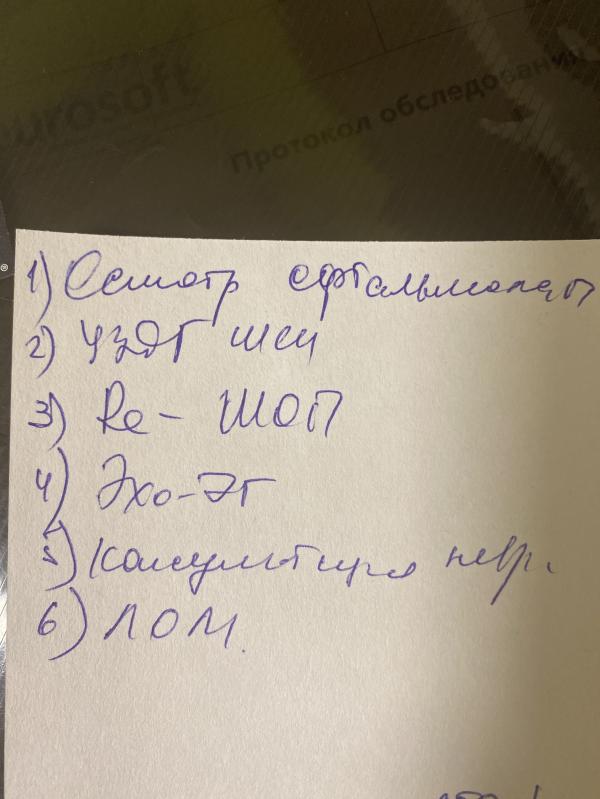 eurosoft
Протокол обследования
1) Осмотр офтальмолог
2) УЗДГ
3) Rе- ШОП
4) Эхо-ЭГ
5) Консультация невр.
6) ЛОМ.